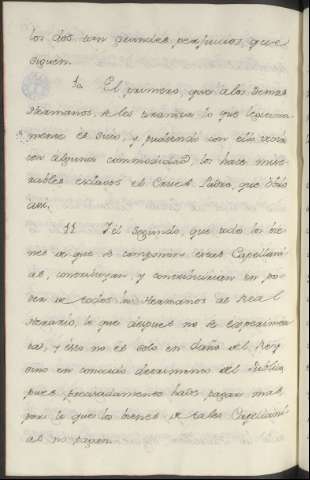 los dos tan grandes perjuicios, que se
siguen.
10 El primero, que a los demas
Hermanos, se les usurpa lo que legitima
mente es suyo, y pudiendo con ello vivir
con alguna commodidad, los hace mise
rables esclavos el Cruel Padre, que obró
assi.
11 Y el segundo, que todos los bie
nes de que se componen estas Capellani
as, contribuyan, y contribuirian en po
der de todos los Hermanos al Real
Herario, lo que despues no se experimen
ta, y esto no es solo en daño del Rey
sino en conocido detrimento del Publico,
pues precisadamente hade pagar mas
por lo que los bienes de tales Capellani
as no pagan.